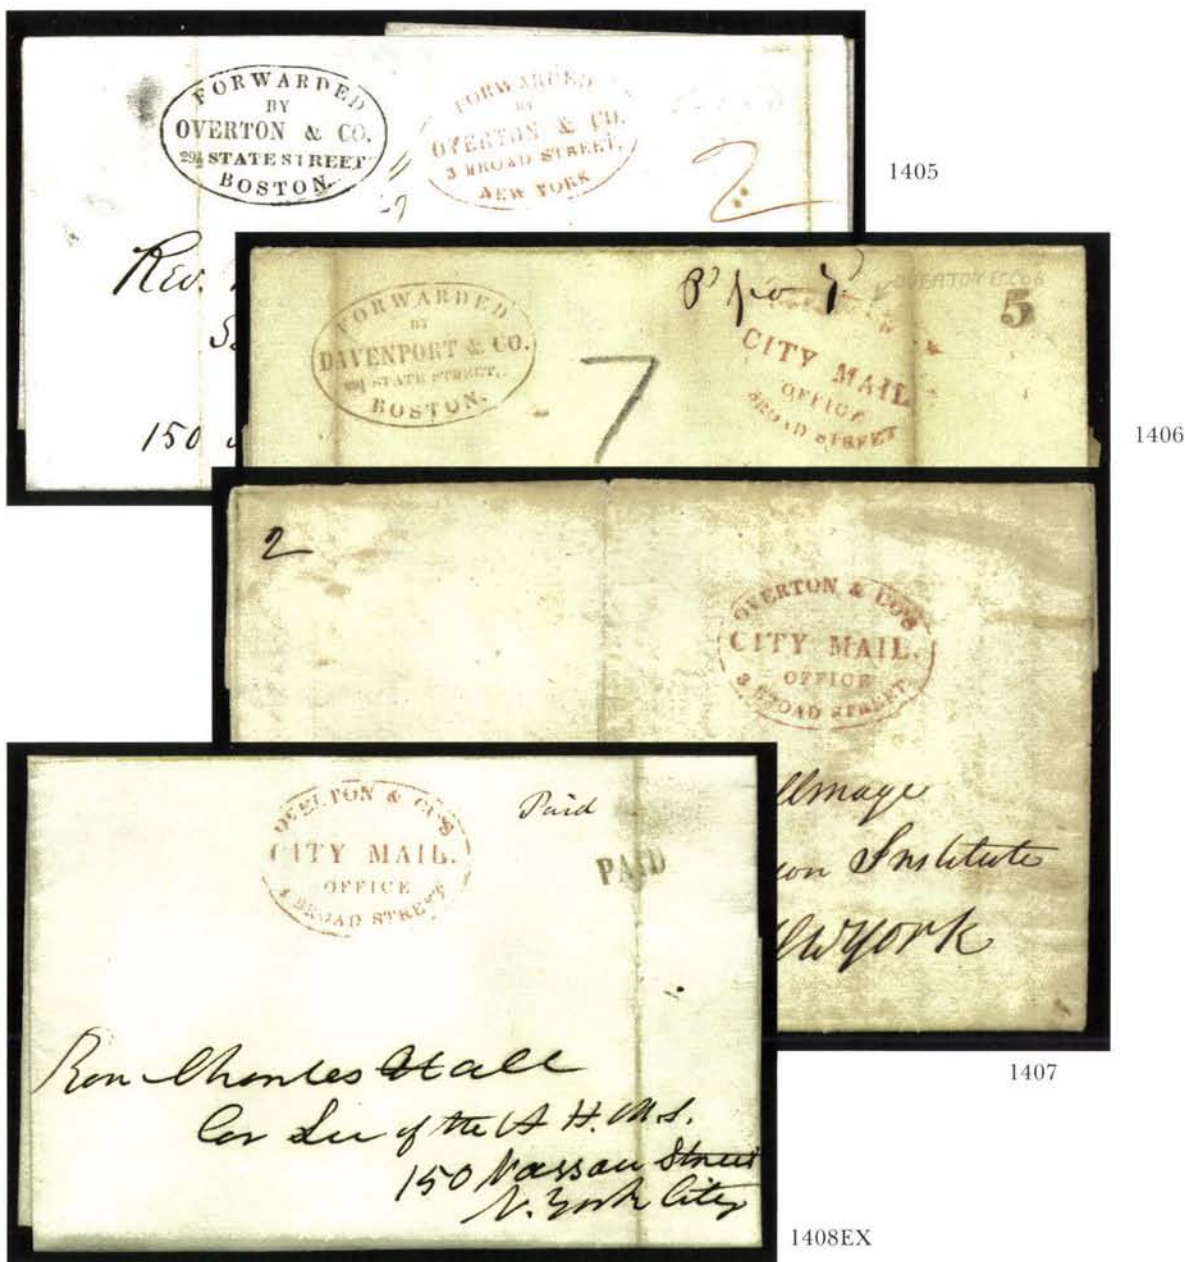 FORWARDED
BY
OVERTON & CO.
29½ STATE STREET
BOSTON.
FORWARDED
BY
OVERTON & CO.
3 BROAD STREET,
NEW YORK
2
Rev.
150
1405
FORWARDED
BY
DAVENPORT & CO.
29½ STATE STREET,
BOSTON.
7
OVERTON & CO
5
CITY MAIL
OFFICE
BROAD STREET
1406
2
OVERTON & CO'S
CITY MAIL.
OFFICE
3 BROAD STREET
llmage
on Institute
Newyork
1407
OVERTON & CO'S
CITY MAIL.
OFFICE
3 BROAD STREET
Paid
PAID
Rev Charles Hall
Cor Sec of the A. H. M. S.
150 Nassau Street
N. York City
1408EX